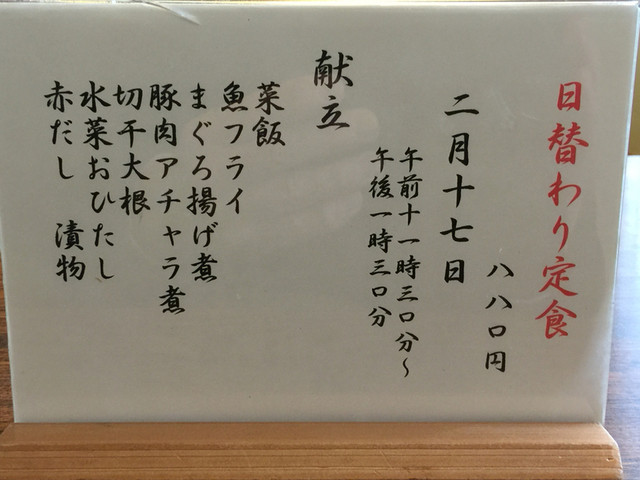 日替わり定食
八八〇円
二月十七日
午前十一時三〇分～
午後一時三〇分
献立
菜飯
魚フライ
まぐろ揚げ煮
豚肉アチャラ煮
切干大根
水菜おひたし
赤だし 漬物